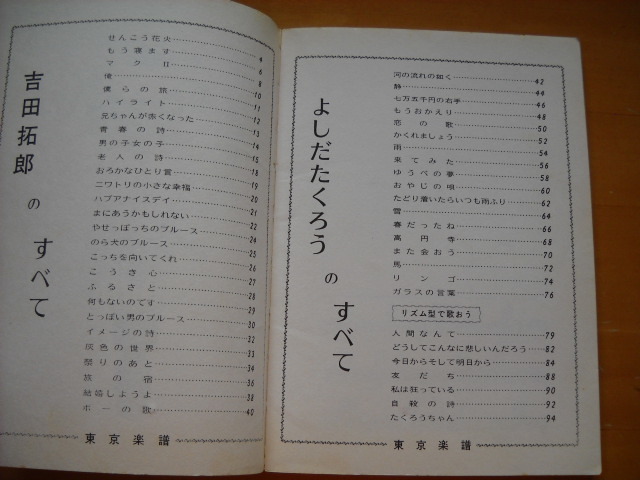 吉田拓郎のすべて
せんこう花火 4
もう寝ます 6
マークⅡ 8
俺 10
僕らの旅 11
ハイライト 12
兄ちゃんが赤くなった 13
青春の詩 14
男の子女の子 15
老人の詩 18
おろかなひとり言 19
ニワトリの小さな幸福 20
ハブアナイスデイ 21
まにあうかもしれない 22
やせっぽっちのブルース 24
のら犬のブルース 25
こっちを向いてくれ 26
こうき心 27
ふるさと 28
何もないのです 29
とっぽい男のブルース 30
イメージの詩 32
灰色の世界 33
祭りのあと 34
旅の宿 36
結婚しようよ 38
ポーの歌 40
東京楽譜
よしだたくろうのすべて
河の流れの如く 42
静 44
七万五千円の右手 46
もうおかえり 48
恋の歌 50
かくれましょう 52
雨 54
来てみた 56
ゆうべの夢 58
おやじの唄 60
たどり着いたらいつも雨ふり 62
雪 64
春だったね 66
高円寺 68
また会おう 70
馬 72
リンゴ 74
ガラスの言葉 76
リズム型で歌おう
人間なんて 79
どうしてこんなに悲しいんだろう 82
今日からそして明日から 84
友だち 88
私は狂っている 90
自殺の詩 92
たくろうちゃん 94
東京楽譜